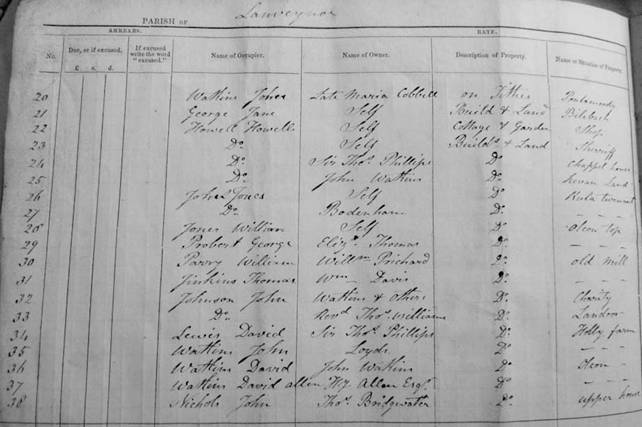 PARISH OF Lanveynoe
ARREARS. RATE.
No. Due, or if excused. If excused write the word "excused." Name of Occupier. Name of Owner. Description of Property. Name or Situation of Property.
£ s. d.
20 Watkins James Late Maria Cobbell on Tithes
21 George Jane Self Build & Land Bilbitch
22 Howell Howells Self Cottage & Garden Shop
23 Do Self Buildgs & Land Sherriff
24 Do Sir Thos Phillips Do Chappel house
25 Do John Watkins Do Land
26 John Jones Self Do
27 Do Bodenham Do " "
28 Jones William Self Do olcon top
29 Probert George Elizth Thomas Do " "
30 Parry William Willm Prichard Do old Mill
31 Jinkins Thomas Wm Davis Do " "
32 Johnson John Watkins & others Do Charity
33 Do Revd Thos Williams Do Landor
34 Lewis David Sir Thos Phillips Do Holly farm
35 Watkins John Loyds Do " "
36 Watkins David John Watkins Do Olcon
37 Watkins David allen Hy Allen Esqr Do " "
38 Nichols John Thos Bridgwater Do upper house